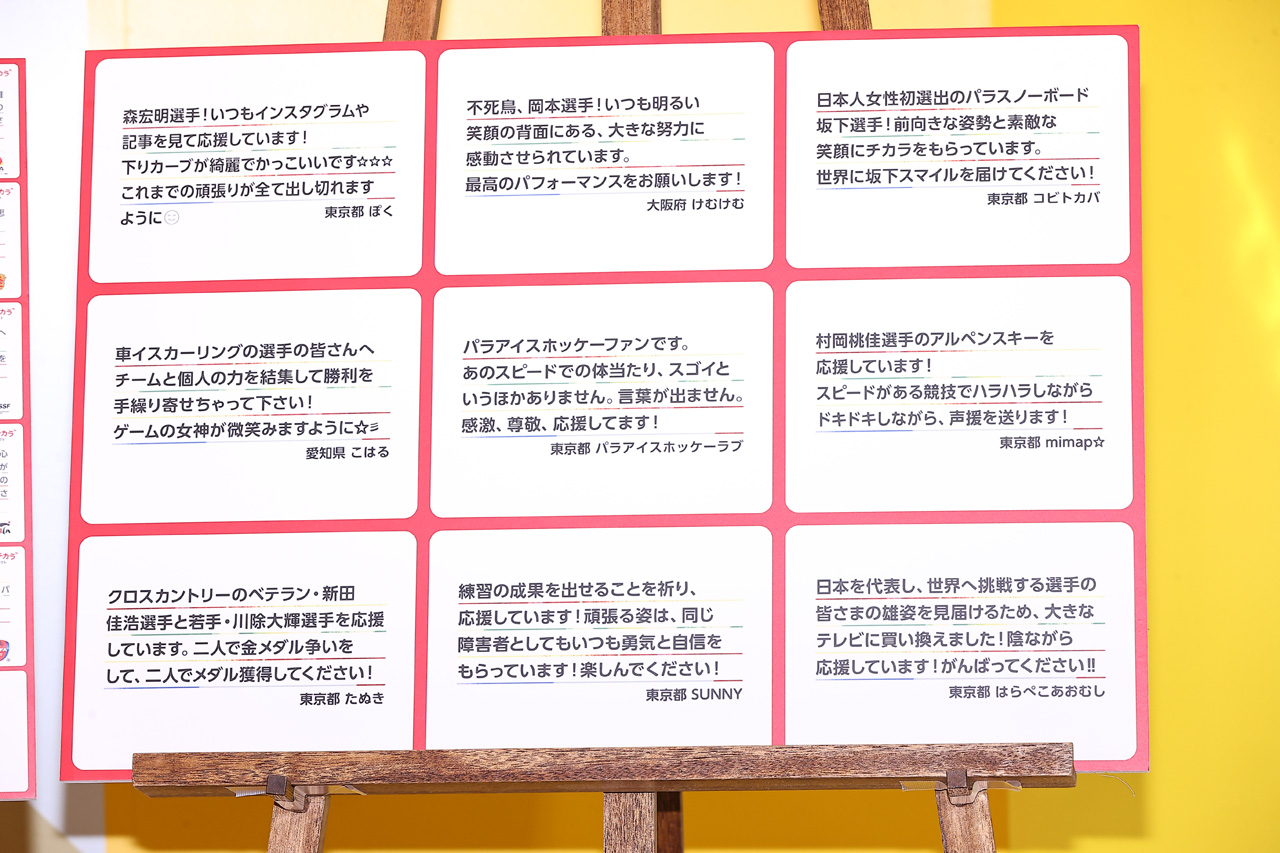 森宏明選手!いつもインスタグラムや
記事を見て応援しています!
下りカーブが綺麗でかっこいいです☆☆☆
これまでの頑張りが全て出し切れます
ように😊
東京都 ぽく
不死鳥、岡本選手!いつも明るい
笑顔の背面にある、大きな努力に
感動させられています。
最高のパフォーマンスをお願いします!
大阪府 けむけむ
日本人女性初選出のパラスノーボード
坂下選手!前向きな姿勢と素敵な
笑顔にチカラをもらっています。
世界に坂下スマイルを届けてください!
東京都 コビトカバ
車イスカーリングの選手の皆さんへ
チームと個人の力を結集して勝利を
手繰り寄せちゃって下さい!
ゲームの女神が微笑みますように☆彡
愛知県 こはる
パラアイスホッケーファンです。
あのスピードでの体当たり、スゴイと
いうほかありません。言葉が出ません。
感激、尊敬、応援してます!
東京都 パラアイスホッケーラブ
村岡桃佳選手のアルペンスキーを
応援しています!
スピードがある競技でハラハラしながら
ドキドキしながら、声援を送ります!
東京都 mimap☆
クロスカントリーのベテラン・新田
佳浩選手と若手・川除大輝選手を応援
しています。二人で金メダル争いを
して、二人でメダル獲得してください!
東京都 たぬき
練習の成果を出せることを祈り、
応援しています!頑張る姿は、同じ
障害者としてもいつも勇気と自信を
もらっています!楽しんでください!
東京都 SUNNY
日本を代表し、世界へ挑戦する選手の
皆さまの雄姿を見届けるため、大きな
テレビに買い換えました!陰ながら
応援しています!がんばってください!!
東京都 はらぺこあおむし